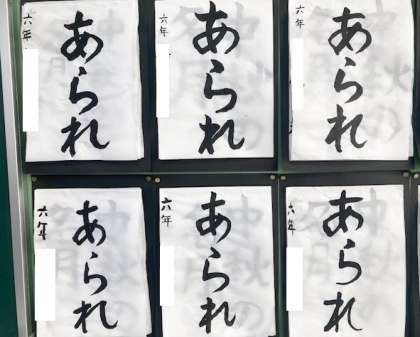 六年
あられ
六年
あられ
六年
あられ
六年
あられ
六年
あられ
六年
あられ